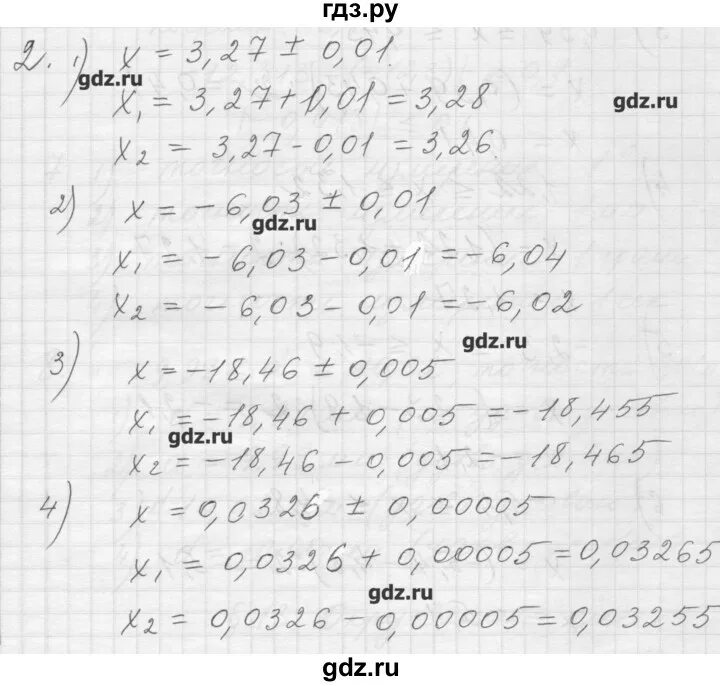 гдз.ру
2. 1) x = 3,27 ± 0,01.
gdz.ru
x₁ = 3,27 + 0,01 = 3,28
gdz.ru
x₂ = 3,27 - 0,01 = 3,26.
2) x = - 6,03 ± 0,01
gdz.ru
x₁ = - 6,03 - 0,01 = - 6,04
x₂ = - 6,03 - 0,01 = - 6,02
gdz.ru
3) x = -18,46 ± 0,005
x₁ = -18,46 + 0,005 = -18,455
gdz.ru
x₂ = -18,46 - 0,005 = -18,465
4) x = 0,0326 ± 0,00005
x₁ = 0,0326 + 0,00005 = 0,03265
gdz.ru
x₂ = 0,0326 - 0,00005 = 0,03255
gdz.ru